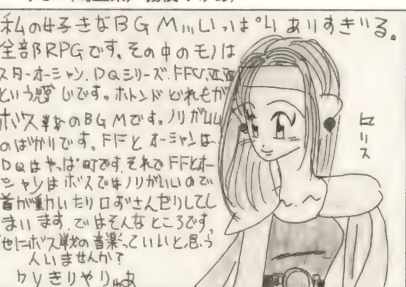 私の好きなBGM…いっぱいありすぎる。
全部RPGです。その中のモノは
スターオーシャン、DQシリーズ、FFⅤ、Ⅵ、Ⅶ
という感じです。ホトンドどれもが
ボス戦のBGMです。ノリがいい
のばかりです。FFとオーシャンは…
DQはやっぱ町です。それでFFとオー
シャンはボスではノリがいいので
首が動いたり口ずさんだりしてし
まいます。ではそんなところです。
他にボス戦の音楽っていいと思う
人いませんか?
クリきりやりゅあ
ヒリス